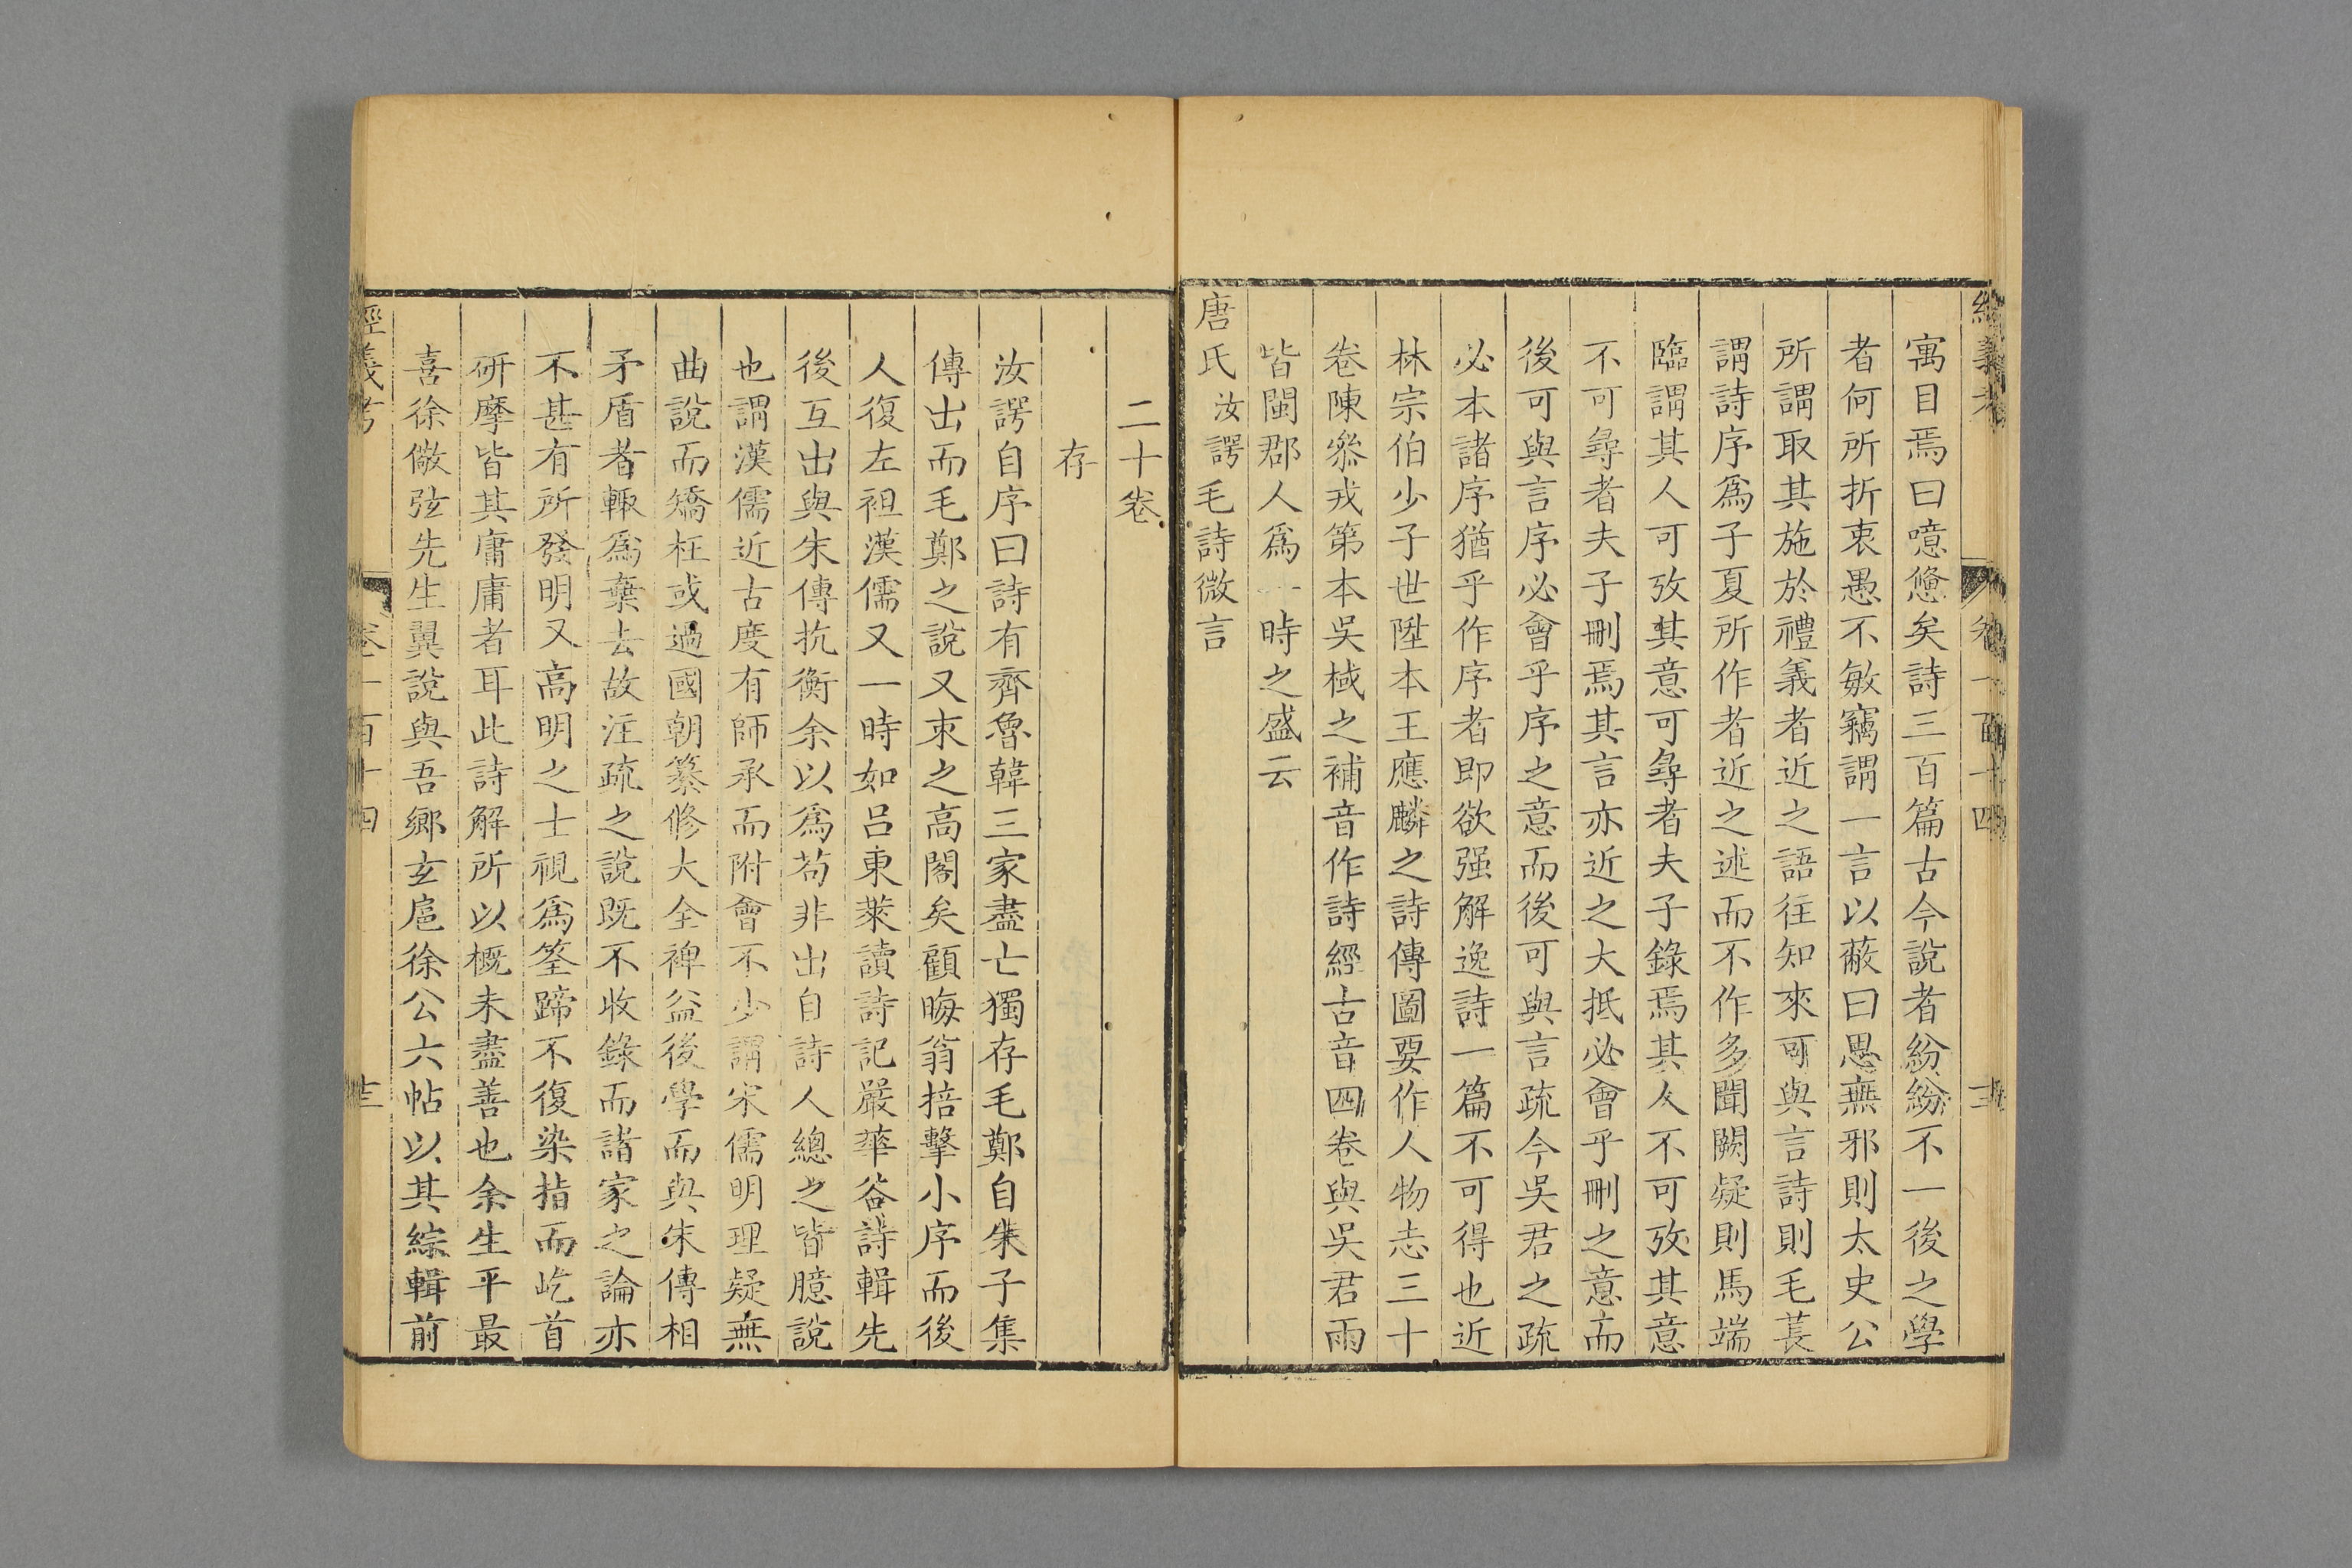 經義考 卷一百十四 十二
寓目焉曰噫憊矣詩三百篇古今說者紛紛不一後之學
者何所折衷愚不敏竊謂一言以蔽曰思無邪則太史公
所謂取其施於禮義者近之語往知來可與言詩則毛萇
謂詩序爲子夏所作者近之述而不作多聞闕疑則馬端
臨謂其人可攷其意可尋者夫子錄焉其人不可攷其意
不可尋者夫子刪焉其言亦近之大抵必會乎刪之意而
後可與言序必會乎序之意而後可與言疏今吳君之疏
必本諸序猶乎作序者即欲强解逸詩一篇不可得也近
林宗伯少子世陞本王應麟之詩傳圖要作人物志三十
卷陳叅戎第本吳棫之補音作詩經古音四卷與吳君雨
皆閩郡人爲一時之盛云
唐氏汝諤毛詩微言
二十卷
存
汝諤自序曰詩有齊魯韓三家盡亡獨存毛鄭自朱子集
傳出而毛鄭之說又束之高閣矣顧晦翁掊擊小序而後
人復左袒漢儒又一時如呂東萊讀詩記嚴華谷詩輯先
後互出與朱傳抗衡余以爲苟非出自詩人總之皆臆說
也謂漢儒近古度有師承而附會不少謂宋儒明理疑無
曲說而矯枉或過國朝纂修大全裨益後學而與朱傳相
矛盾者輒爲棄去故注疏之說既不收錄而諸家之論亦
不甚有所發明又高明之士視爲筌蹄不復染指而屹首
研摩皆其庸庸者耳此詩解所以概未盡善也余生平最
喜徐儆弦先生翼說與吾鄉玄扈徐公六帖以其綜輯前
經義考 卷一百十四 十三